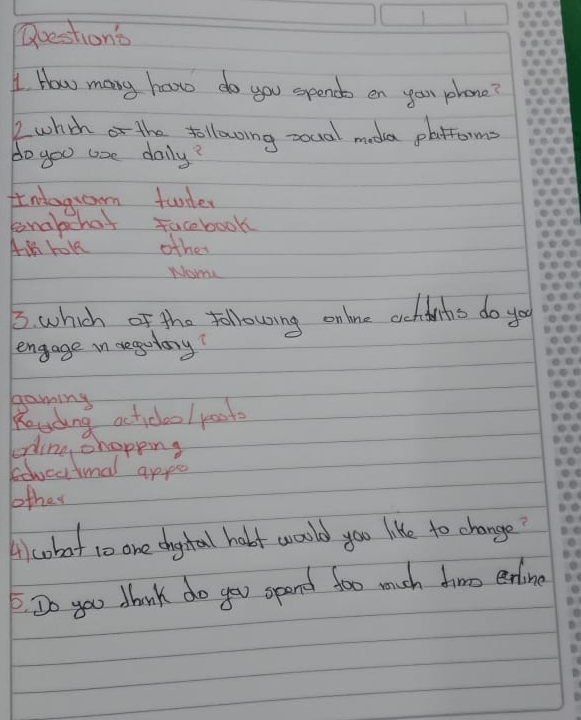 Question's
1. How many hours do you spends on your phone?
2. which of the following social media platforms
do you use daily?
Intagram twiter
snapchat Facebook
tik tok other
None
3. which of the following online activitis do you
engage in regulary?
gaming
Reading articles/posts
online shopping
educational apps
other
4) what is one digital habt would you like to change?
5. Do you think do you spend too much time online